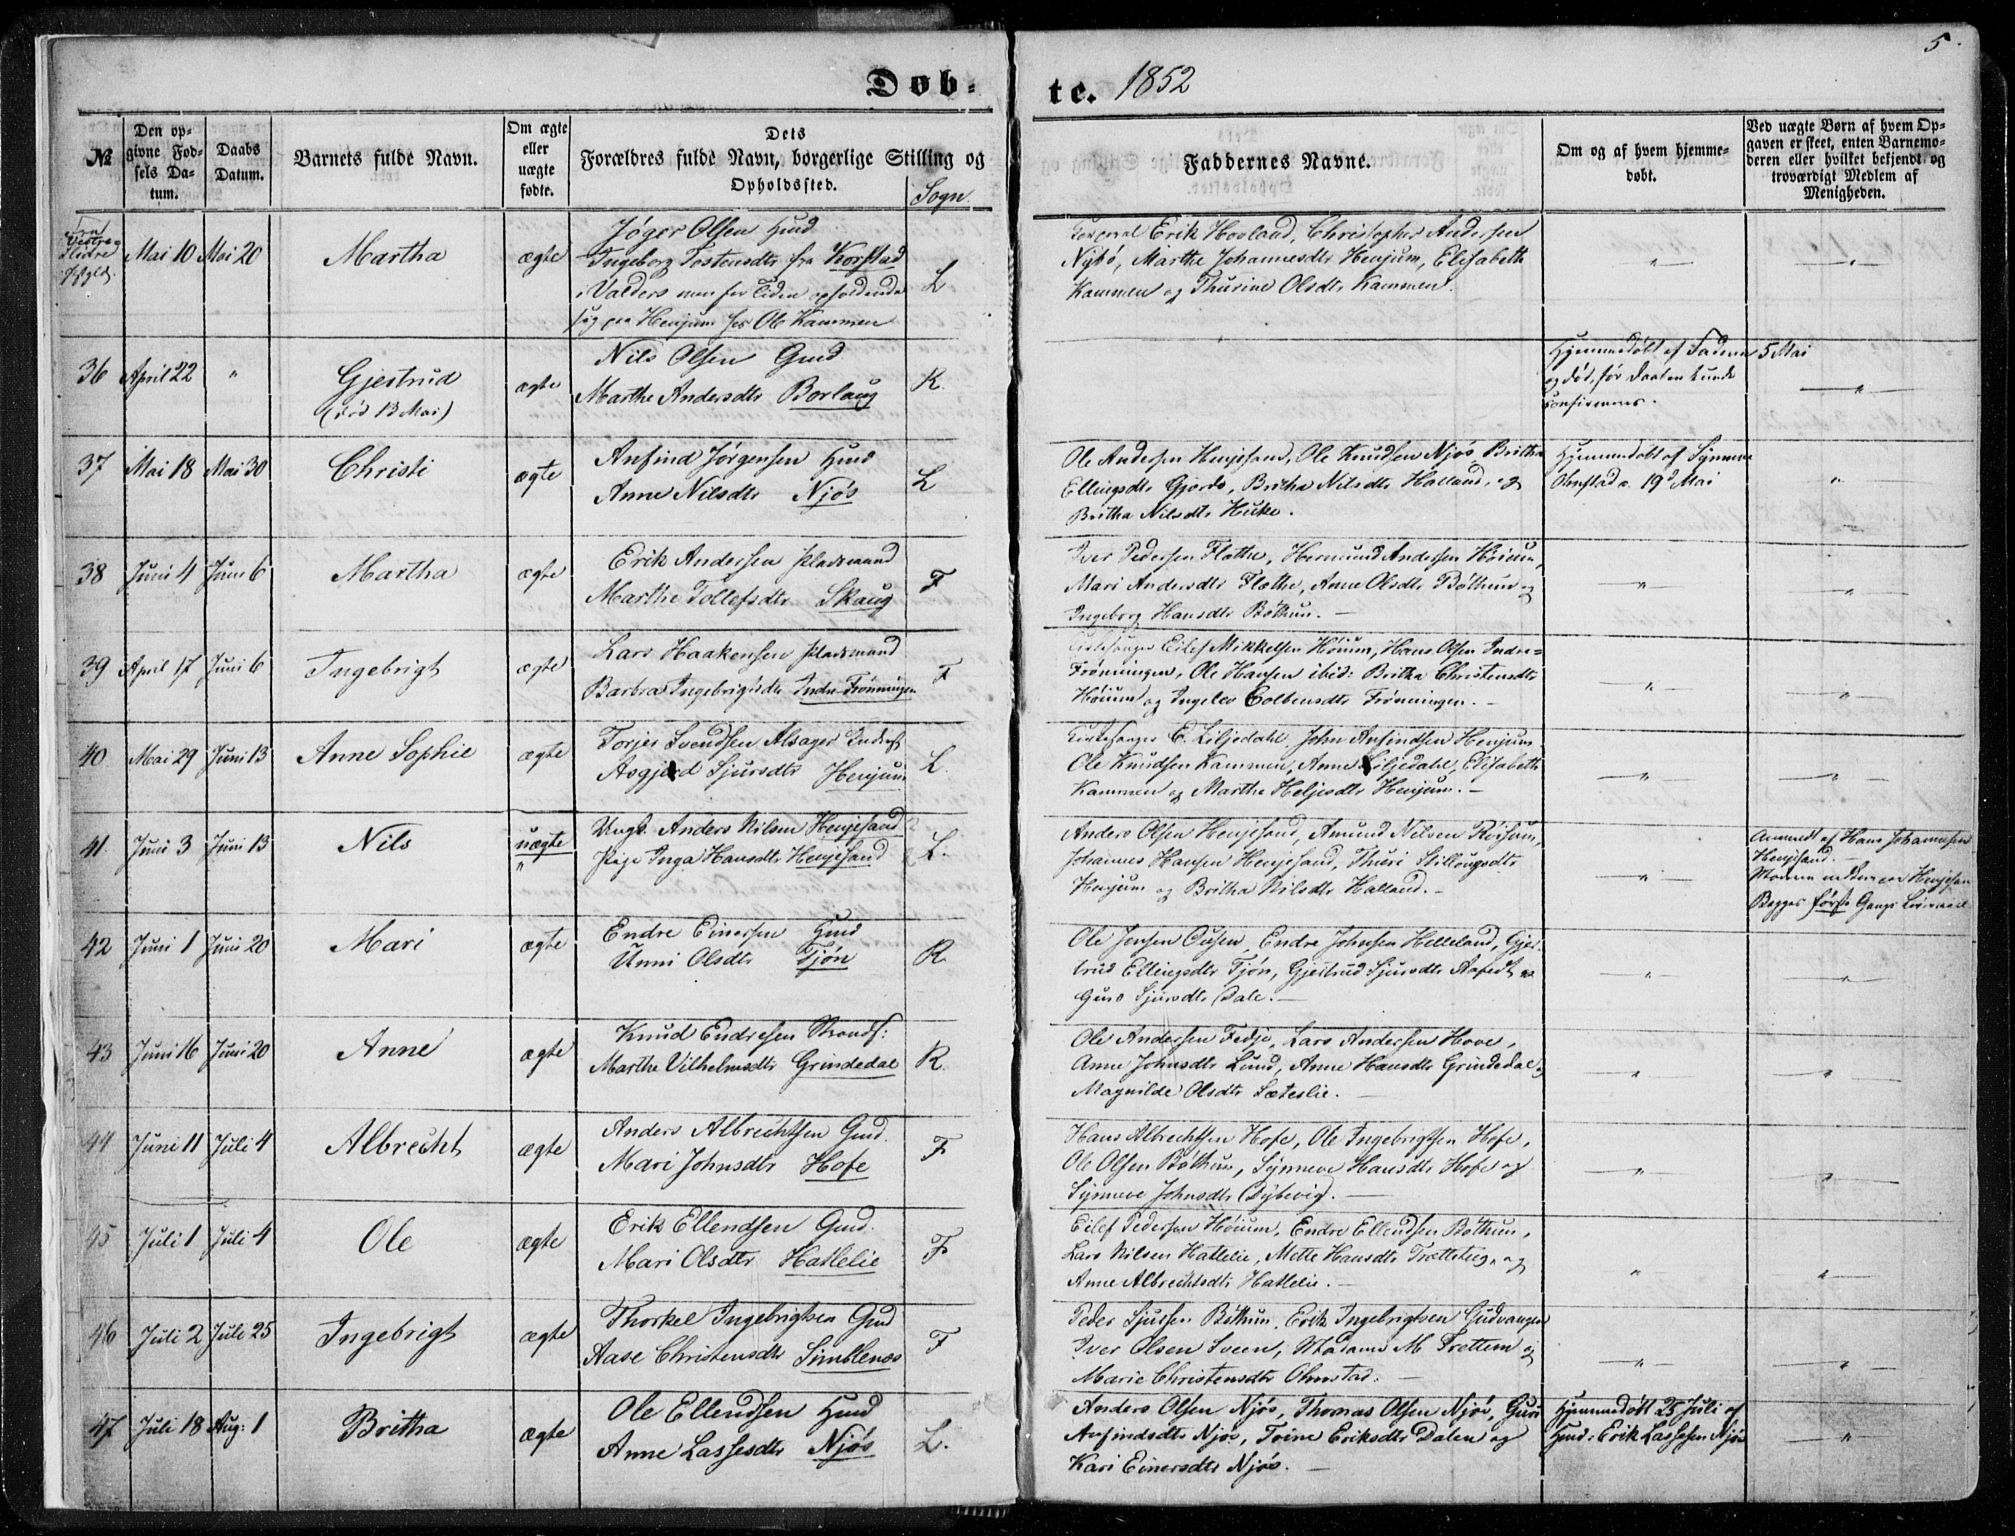 5
Døb-
te. 1852
№
Den op-
givne Fød-
sels Da-
tum.
Daabs
Datum.
Barnets fulde Navn.
Om ægte
eller
uægte
fødte.
Dets
Forældres fulde Navn, borgerlige Stilling og
Opholdssted.
Sogn.
Faddernes Navne.
Om og af hvem hjemme-
døbt.
Ved uægte Børn af hvem Op-
gaven er skeet, enten Barnemo-
deren eller hvilket bekjendt og
troværdigt Medlem af
Menigheden.
Fra
Vestre
Slidre
Pgld.
Mai 10 Mai 20 Martha ægte
Jøger Olsen Huusd
Ingeborg Tostensdtr fra Korstad
i Valders men for Tiden opholdende
sig paa Henjum hos Ole Kammen
L
Erik Hovland, Christopher Andersen
Nybø, Marthe Johannesdtr Henjum, Elisabeth
Kammen og Thurine Olsdtr Kammen.
" "
36 April 22 " Gjertrud
(død 13 Mai)
ægte
Nils Olsen Gmd
Marthe Andersdtr Borlaug
K.
Hjemmedøbt af Faderen 5 Mai
og død, før Daaben kunde
confirmeres.
"
37 Mai 18 Mai 30 Christi ægte
Anfind Jørgensen Hmd
Anne Nilsdtr Njøs
L
Ole Andersen Henjesand, Ole Knudsen Njøs, Britha
Ellingsdtr Gjerde, Britha Nilsdtr Halland, og
Britha Nilsdtr Huke.
Hjemmedøbt af Synneve
Ohnstad d. 19d Mai
"
38 Juni 4 Juni 6 Martha ægte
Erik Andersen Pladsmand
Marthe Tollefsdtr Skaug
F
Iver Pedersen Flathe, Hermund Andersen Høium,
Mari Andersdtr Flathe, Anne Olsdtr Bøthun og
Ingeborg Hansdtr Bøthun. —
" "
39 April 17 Juni 6 Ingebrigt ægte
Lars Haakensen Pladsmand
Barbra Ingebrigtsdtr Indre Frønningen
F
Kirkesanger Eilef Mikkelsen Høium, Hans Olsen Indre-
Frønningen, Ole Hansen ibid: Britha Christensdtr
Høium og Ingelev Colbensdtr Frønningen. —
" "
40 Mai 29 Juni 13 Anne Sophie ægte
Torjer Svendsen Alsager Inderst
Asgjerd Sjursdtr Henjum
L.
Kirkesanger E. Liljedahl, John Anfindsen Henjum
Ole Knudsen Kammen, Anne Liljedahl, Elisabeth
Kammen og Marthe Heljesdtr Henjum. —
" "
41 Juni 3 Juni 13 Nils uægte
"
Ungk. Anders Nilsen Henjesand
Pige Inga Hansdtr Henjesand
L.
Anders Olsen Henjesand, Amund Nilsen Røysum,
Johannes Hansen Henjesand, Thuri Stillougsdtr
Henjum og Britha Nilsdtr Halland. —
"
Anmeldt af Hans Johannesen
Henjesand. —
Begges første Gangs Leiermaal
42 Juni 1 Juni 20 Mari ægte
Endre Einersen Hmd
Unni Olsdtr Tjøn
R.
Ole Jensen Ousen, Endre Johnsen Helleland, Gjer-
trud Ellingsdtr Tjøn, Gjertrud Sjursdtr Aafedt og
Guro Sjursdtr Dale. —
" "
43 Juni 16 Juni 20 Anne ægte
Knud Endresen Strands:
Marthe Vilhelmsdtr Grindedal
R.
Ole Andersen Fedje, Lars Andersen Hove,
Anne Johnsdtr Lund, Anne Hansdtr Grindedal,
Magnilde Olsdtr Sæteslie.
" "
44 Juni 11 Juli 4 Albrecht ægte
Anders Albrechtsen Gmd.
Mari Johnsdtr Hofe
F
Hans Albrechtsen Hofe, Ole Ingebrigtsen Hofe,
Ole Olsen Bøthun, Synneve Hansdtr Hofe og
Synneve Johnsdtr Dybevig. —
" "
45 Juli 1 Juli 4 Ole ægte
Erik Ellendsen Gmd.
Mari Olsdtr Hatlelie
F
Eilef Pedersen Høium, Endre Ellendsen Bøthun,
Lars Nilsen Hatlelie, Mette Hansdtr Trætteteig, og
Anne Albrechtsdtr Hatlelie. —
" "
46 Juli 2 Juli 25 Ingebrigt ægte
Thorkel Ingebrigtsen Gmd
Aase Christensdtr Simblenæs
F
Peder Sjursen Bøthun, Erik Ingebrigtsen Gudvangen
Iver Olsen Sveen, Madame M Frettem og
Marie Christensdtr Ohnstad. —
" "
47 Juli 18 Aug: 1 Britha ægte
Ole Ellendsen Hmd
Anne Lassesdtr Njøs
L.
Anders Olsen Njøs, Thomas Olsen Njøs, Guri
Anfindsdtr Njøs, Toine Eriksdtr Dalen og
Kari Einersdtr Njøs. —
Hjemmedøbt 25 Juli af
Hmd: Erik Lassesen Njøs
"